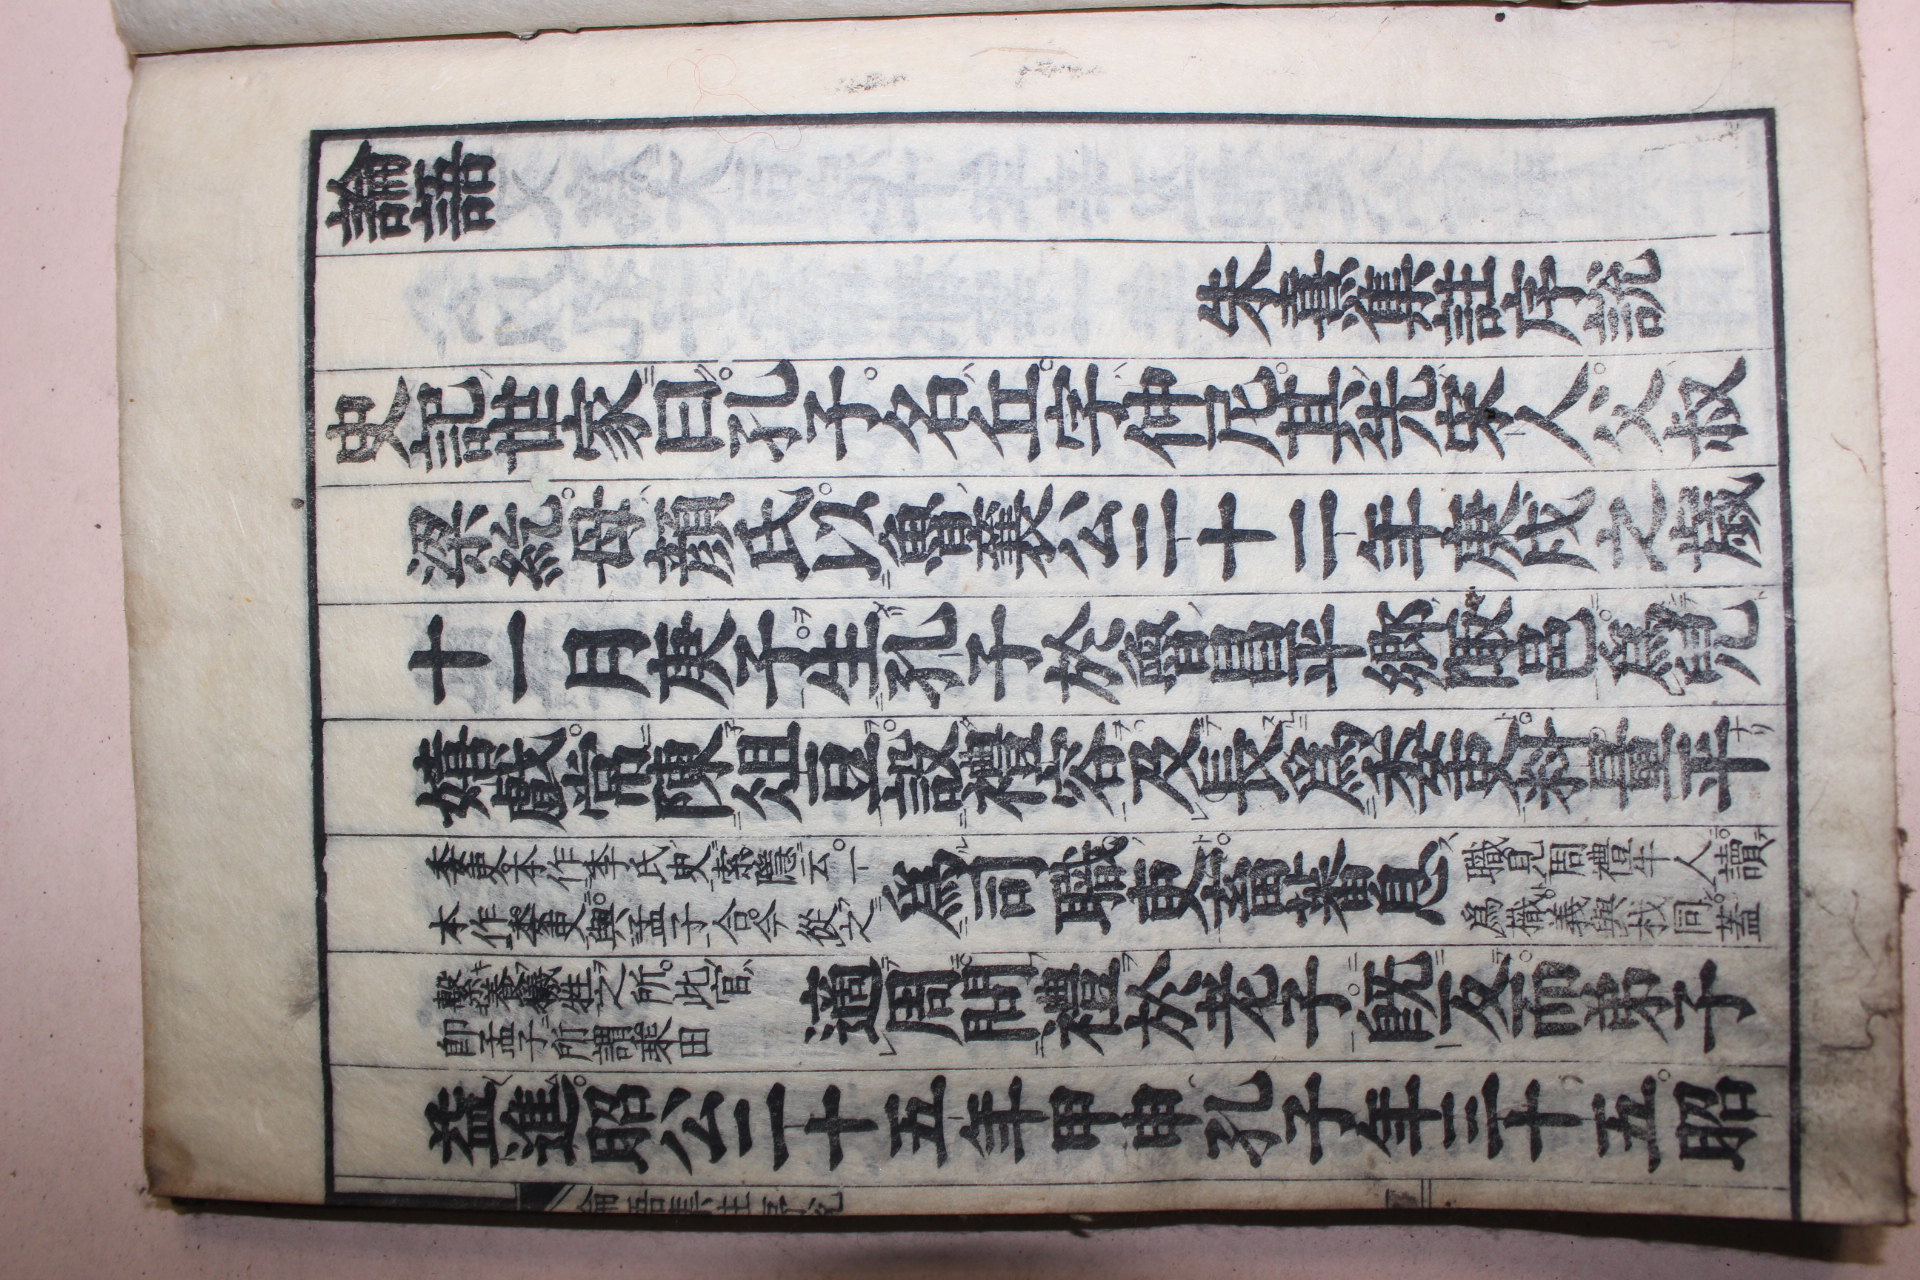 論語
朱熹集註序說
史記世家曰孔子名丘字仲尼其先宋人父叔
梁紇母顏氏以魯襄公二十二年庚戌之歲
十一月庚子生孔子於魯昌平鄉陬邑爲兒
嬉戲常陳俎豆設禮容及長爲委吏料量平
委吏本作季氏史索隱云一
本作委吏與孟子合今從之
爲司職吏畜蕃息
職見周禮牛人讀
爲樴義與杙同蓋
繫養犧牲之所此官
即孟子所謂乘田
適周問禮於老子既反而弟子
益進昭公二十五年甲申孔子年三十五昭